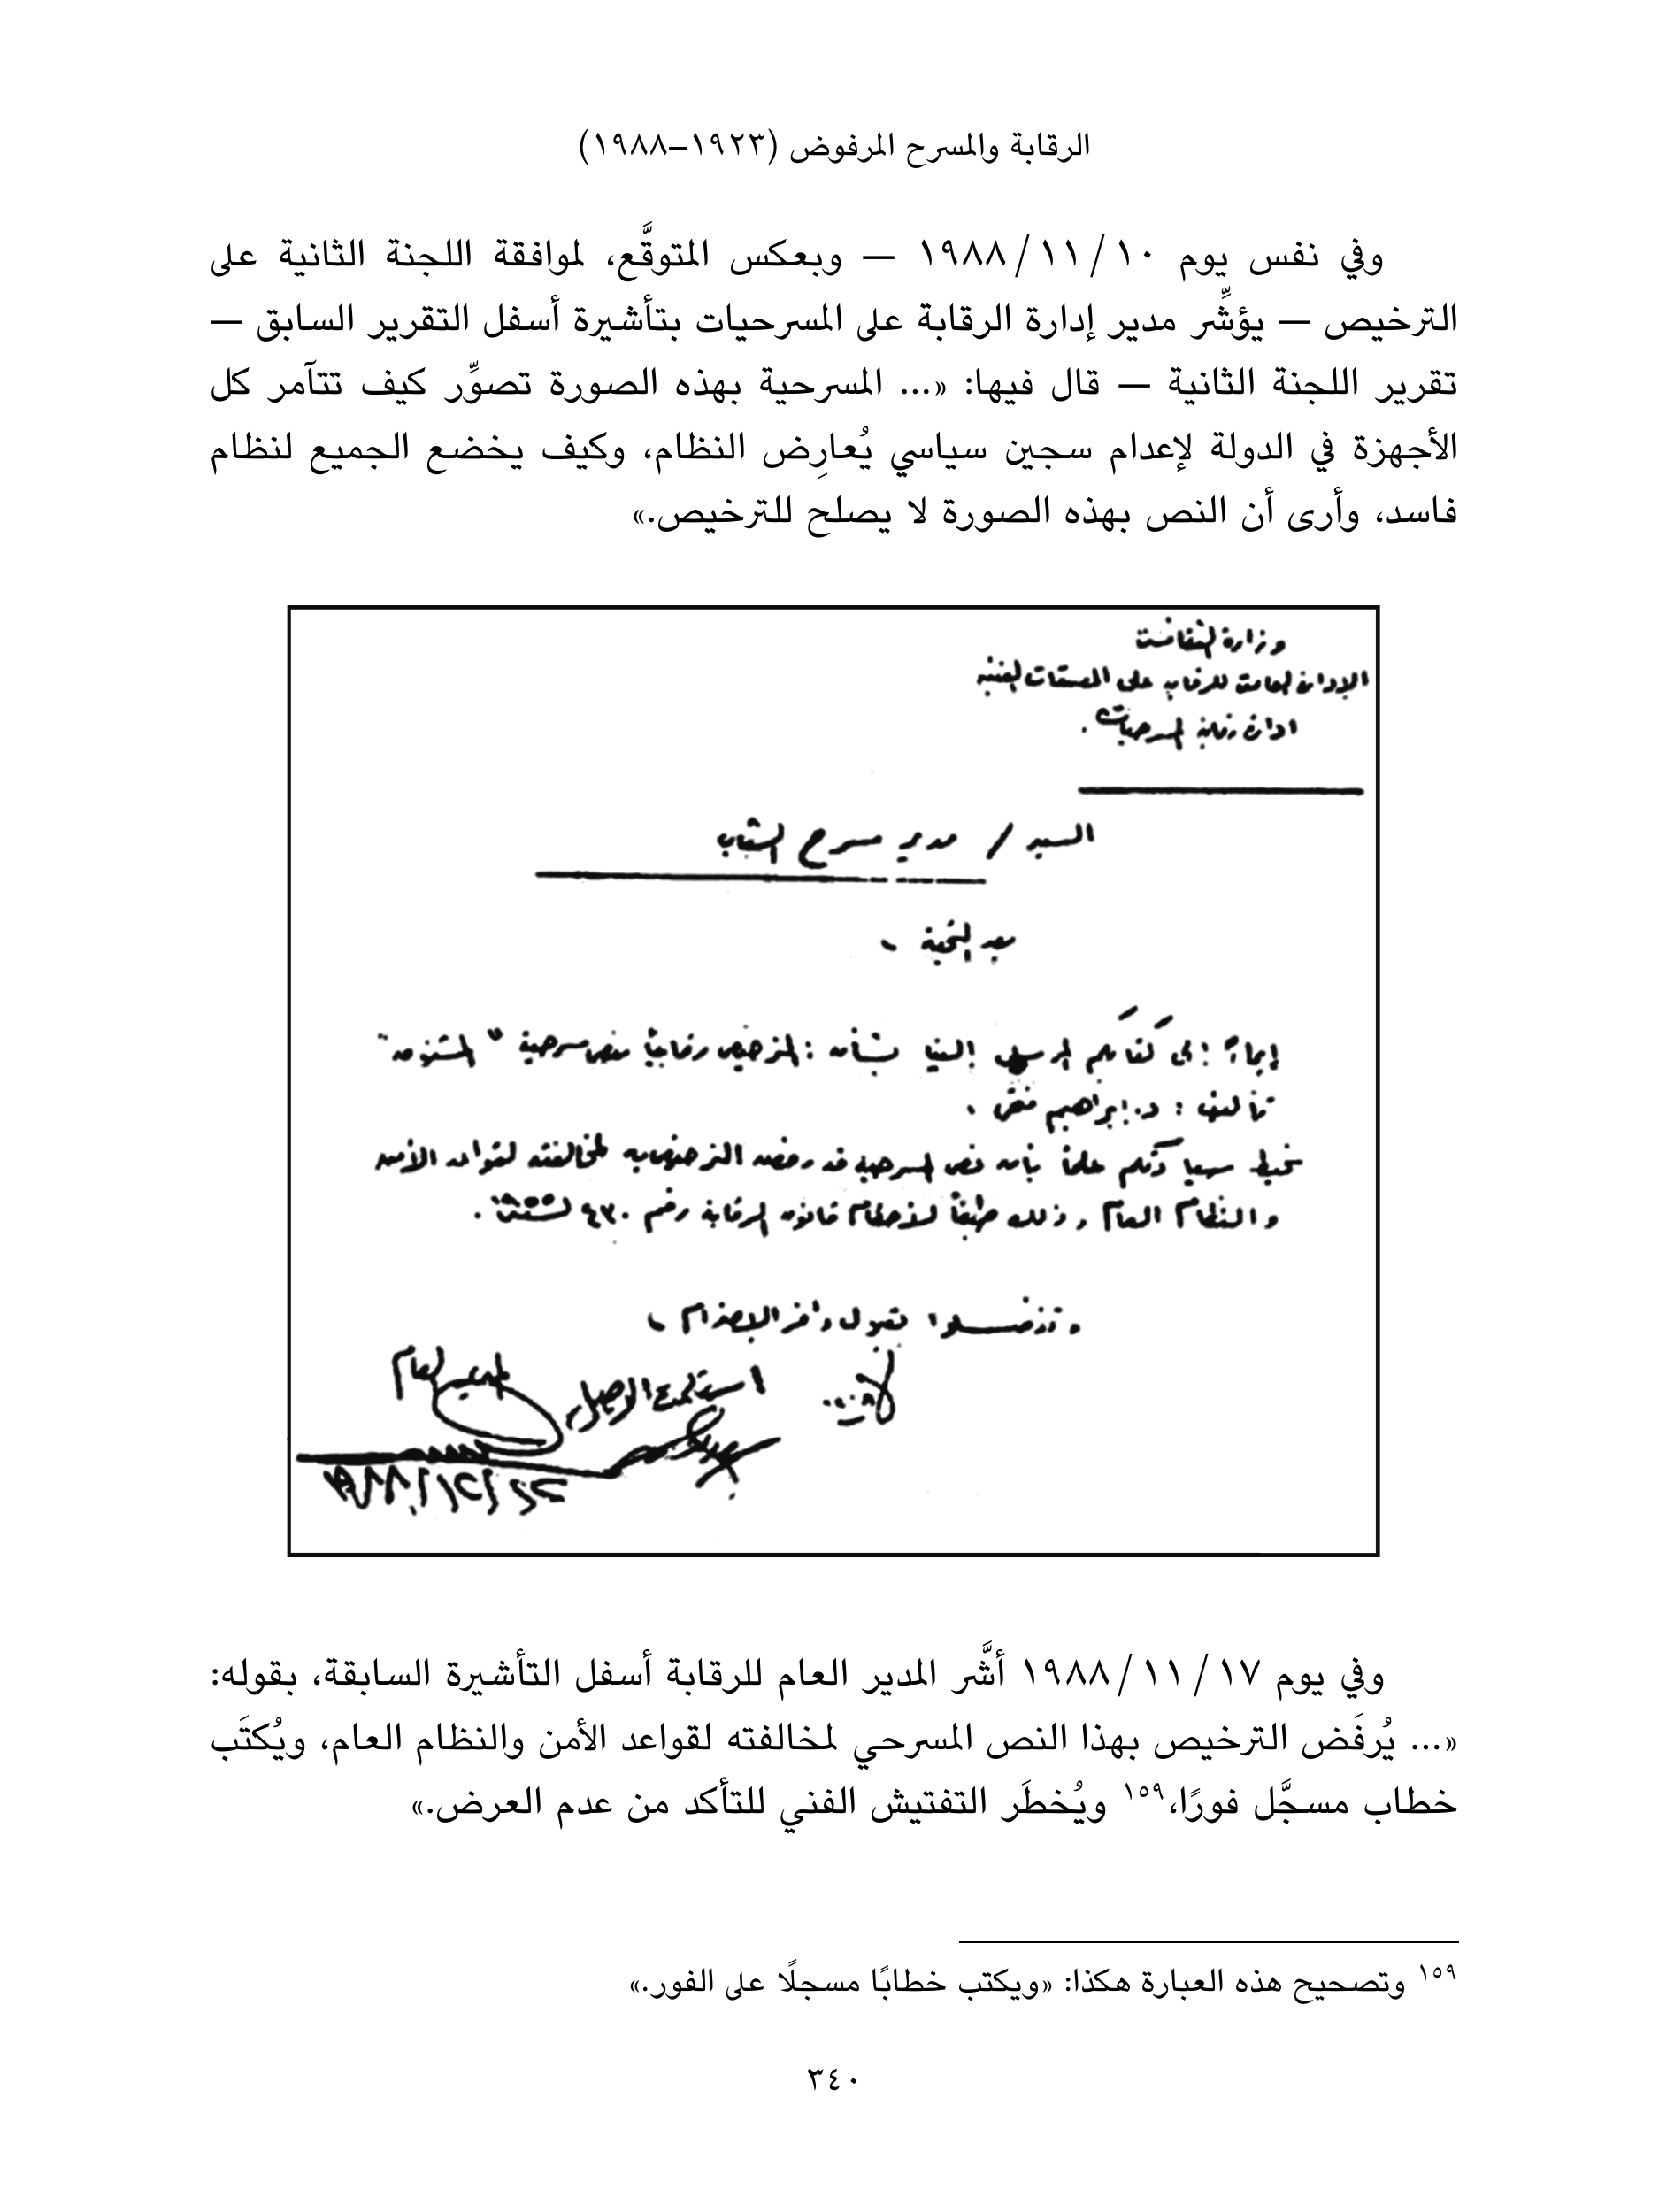 الرقابة والمسرح المرفوض (١٩٢٣–١٩٨٨)
وفي نفس يوم ١٠ / ١١ / ١٩٨٨ — وبعكس المتوقَّع، لموافقة اللجنة الثانية على
الترخيص — يؤشِّر مدير إدارة الرقابة على المسرحيات بتأشيرة أسفل التقرير السابق —
تقرير اللجنة الثانية — قال فيها: «... المسرحية بهذه الصورة تصوِّر كيف تتآمر كل
الأجهزة في الدولة لإعدام سجين سياسي يُعارِض النظام، وكيف يخضع الجميع لنظام
فاسد، وأرى أن النص بهذه الصورة لا يصلح للترخيص.»
وزارة الثقافة
الإدارة العامة للرقابة على المصنفات الفنية
إدارة رقابة المسرحيات .
السيد / مدير مسرح الشباب
بعد التحية ،
إيماءً إلى كتابكم المرسل إلينا بشأن الترخيص رقابياً بنص مسرحية " المشنوق "
تأليف : د. إبراهيم .
نحيط سيادتكم علماً بأن نص المسرحية قد رفض الترخيص به لمخالفته لقواعد الأمن
والنظام العام وذلك طبقاً لأحكام قانون الرقابة رقم ٤٣٠ لسنة ١٩٥٥ .
وتفضلوا بقبول وافر الاحترام ،
المدير العام
استلمت الأصل
١٩٨٨/١٢/
وفي يوم ١٧ / ١١ / ١٩٨٨ أشَّر المدير العام للرقابة أسفل التأشيرة السابقة، بقوله:
«... يُرفَض الترخيص بهذا النص المسرحي لمخالفته لقواعد الأمن والنظام العام، ويُكتَب
خطاب مسجَّل فورًا،١٥٩ ويُخطَر التفتيش الفني للتأكد من عدم العرض.»
١٥٩ وتصحيح هذه العبارة هكذا: «ويكتب خطابًا مسجلًا على الفور.»
٣٤٠